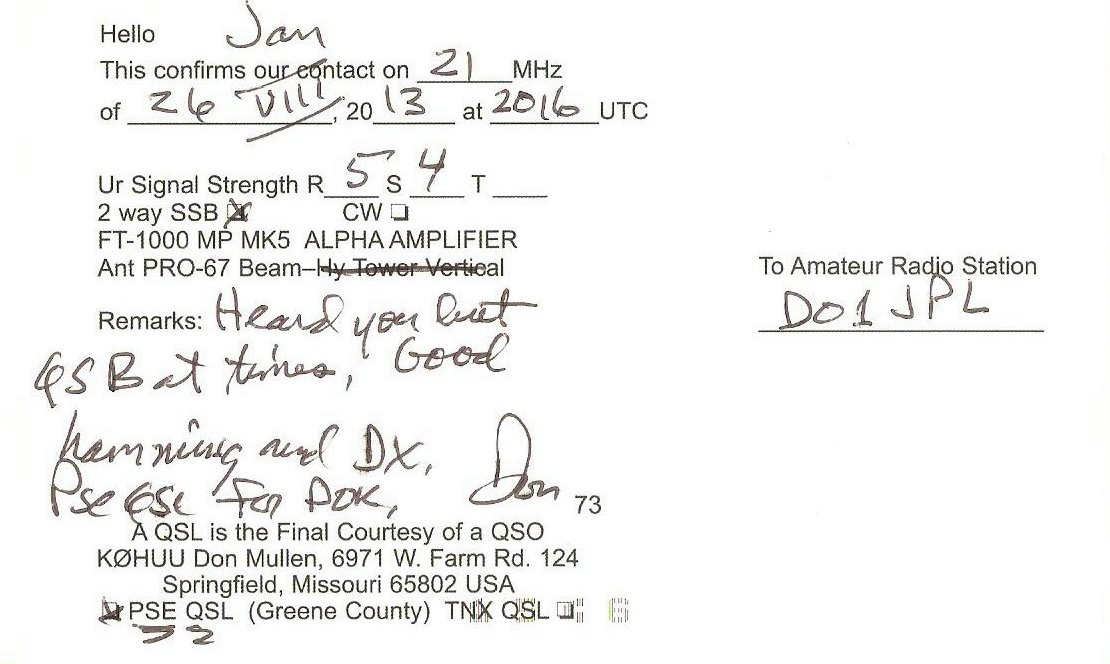 Hello Jan
This confirms our contact on 21 MHz
of 26 VIII, 2013 at 2016 UTC
Ur Signal Strength R 5 S 4 T
2 way SSB ☒ CW ☐
FT-1000 MP MK5 ALPHA AMPLIFIER
Ant PRO-67 Beam–Hy Tower Vertical
To Amateur Radio Station
DO1JPL
Remarks: Heard you but
QSB at times, Good
hamming and DX.
Pse QSL for DOK, Don 73
A QSL is the Final Courtesy of a QSO
KØHUU Don Mullen, 6971 W. Farm Rd. 124
Springfield, Missouri 65802 USA
☒ PSE QSL (Greene County) TNX QSL ☐